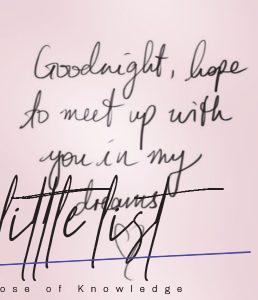 Goodnight, hope
to meet up with
you in my
dreams
little list
ose of Knowledge